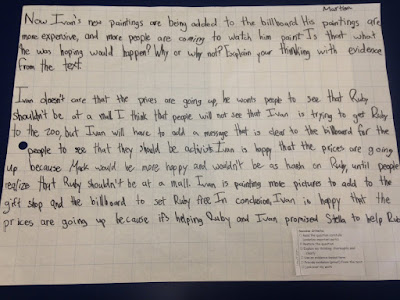 Martha
Now Ivan's new paintings are being added to the billboard. His paintings are
more expensive, and more people are coming to watch him paint. Is that what
he was hoping would happen? Why or why not? Explain your thinking with evidence
from the text.
Ivan doesn't care that the prices are going up, he wants people to see that Ruby
shouldn't be at a mall. I think that people will not see that Ivan is trying to get Ruby
to the zoo, but Ivan will have to add a message that is clear to the billboard for the
people to see that they should be activists. Ivan is happy that the prices are going
up because Mack would be more happy and wouldn't be as harsh on Ruby, until people
realize that Ruby shouldn't be at a mall. Ivan is painting more pictures to add to the
gift shop and the billboard to set Ruby free. In conclusion, Ivan is happy that the
prices are going up because it's helping Ruby and Ivan promised Stella to help Ruby